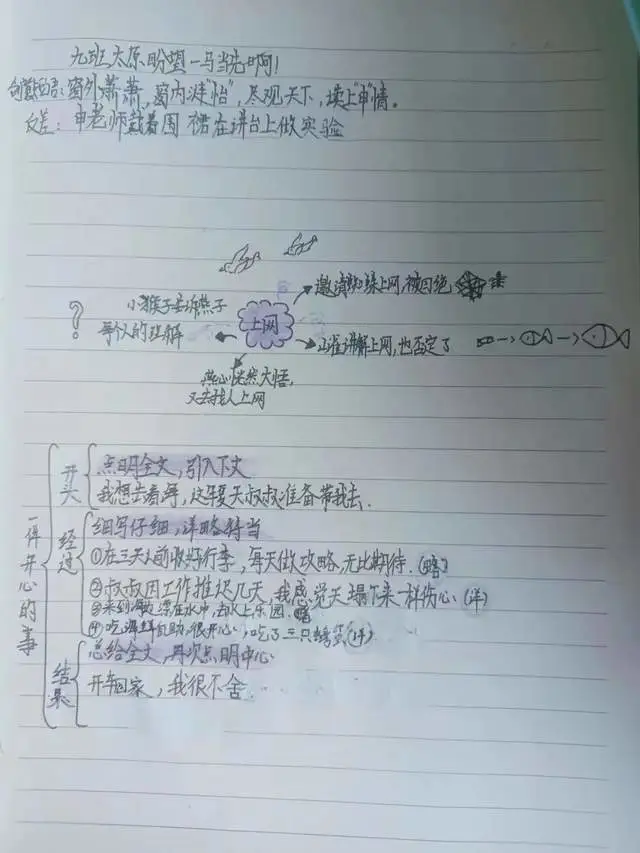 九班太原盼望一马当先啊!
窗外萧萧,窗内涟"怡",尽观天下,读上"申"情。
反差:申老师戴着围裙在讲台上做实验
邀请蜘蛛上网,被回绝
小猴子告诉燕子
每个人的理解
?
上网
讲解上网,也否定了
燕心恍然大悟,
又去找人上网
一件开心的事
开头
点明全文,引入下文
我想去看海,这年夏天叔叔准备带我去.
经过
细写仔细,详略得当
①在三天前收好行李,每天做攻略,无比期待.(略)
②叔叔因工作推迟几天,我感觉天塌下来一样伤心(详)
③来到海,漂在水中,去水上乐园.略
④吃海鲜自助,很开心,吃了三只(详)
结果
总给全文,再次点明中心
开车回家,我很不舍.